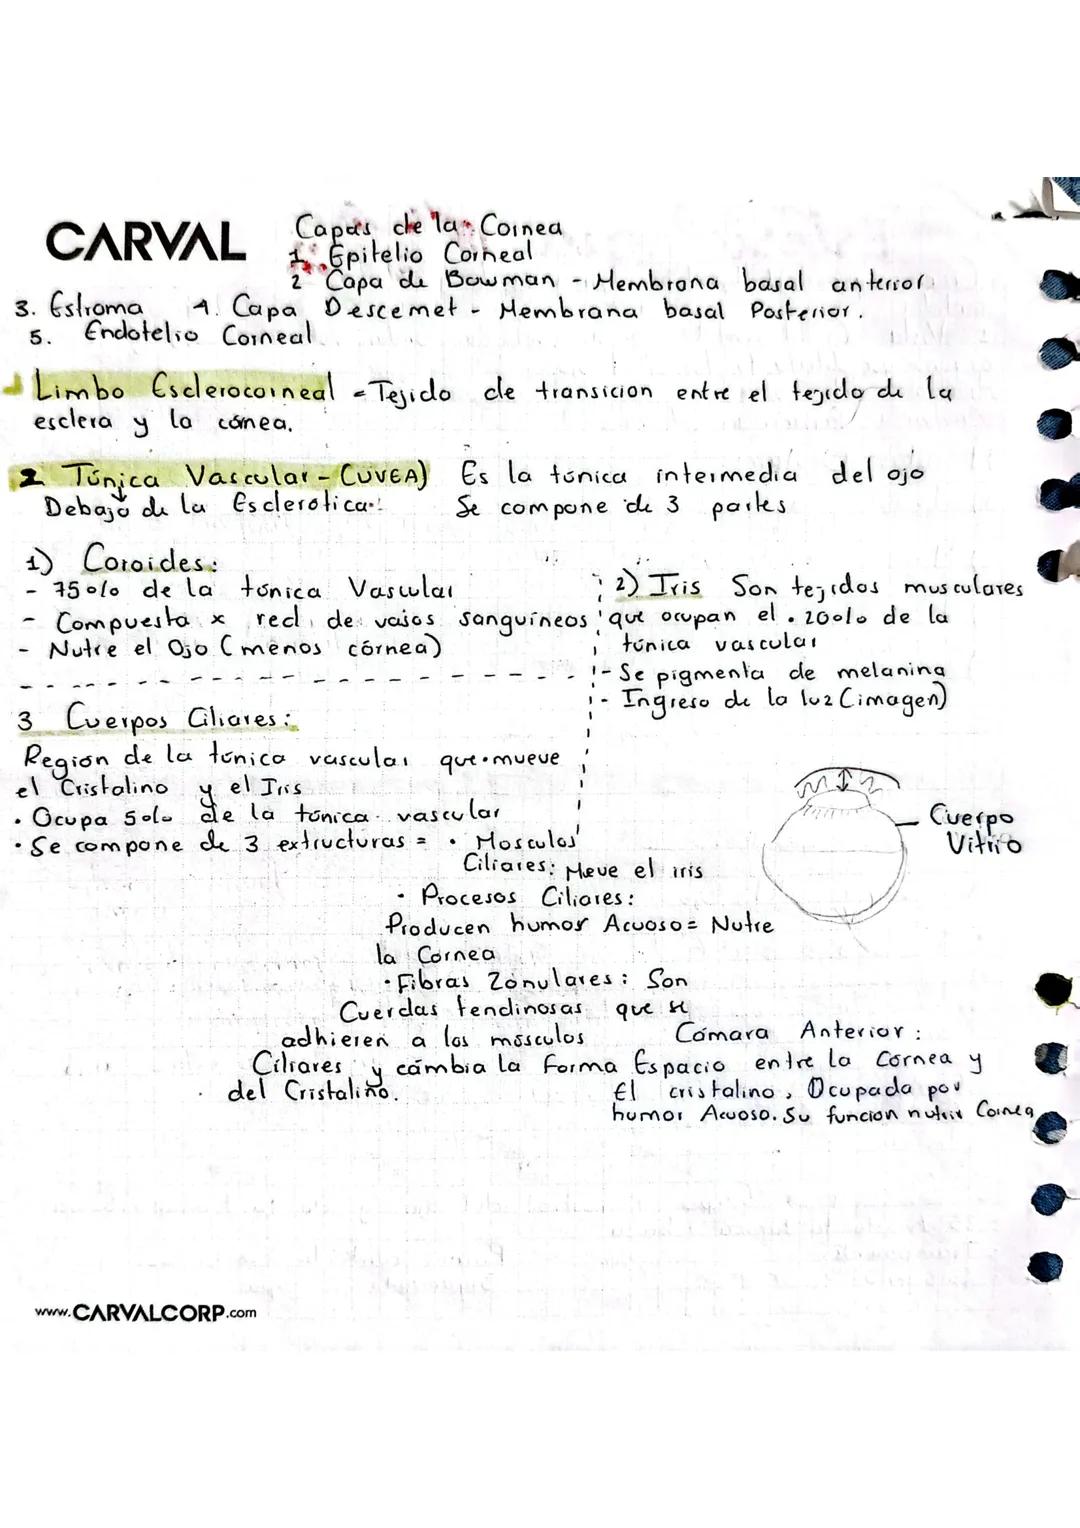 CARVAL
Capas de la Cornea
1. Epitelio Corneal
2 Capa de Bowman - Membrana basal anterior
3. Estroma 4. Capa Descemet - Membrana basal Posterior.
5. Endotelio Corneal
Limbo Esclerocorneal = Tejido de transicion entre el tejido de la
esclera y la córnea.
2 Túnica Vascular - (UVEA) Es la túnica intermedia del ojo
Debajo de la Esclerotica. Se compone de 3 partes
1) Coroides:
- 75% de la túnica Vascular
- Compuesta x red de vasos sanguíneos
- Nutre el Ojo (menos córnea)
2) Iris Son tejidos musculares
que ocupan el 20% de la
túnica vascular
- Se pigmenta de melanina
- Ingreso de la luz (imagen)
3 Cuerpos Ciliares:
Region de la túnica vascular que mueve
el Cristalino y el Iris
• Ocupa 5% de la túnica vascular
• Se compone de 3 extructuras = • Mosculos
Ciliares: Meve el iris
• Procesos Ciliares:
Producen humor Acuoso = Nutre
la Cornea
• Fibras Zonulares: Son
Cuerdas tendinosas que se
adhieren a los músculos
Ciliares y cámbia la Forma
del Cristalino.
Cuerpo
Vitrio
Cámara Anterior:
Espacio entre la Cornea y
El cristalino, Ocupada por
humor Acuoso. Su funcion nutrir Cornea
www.CARVALCORP.com